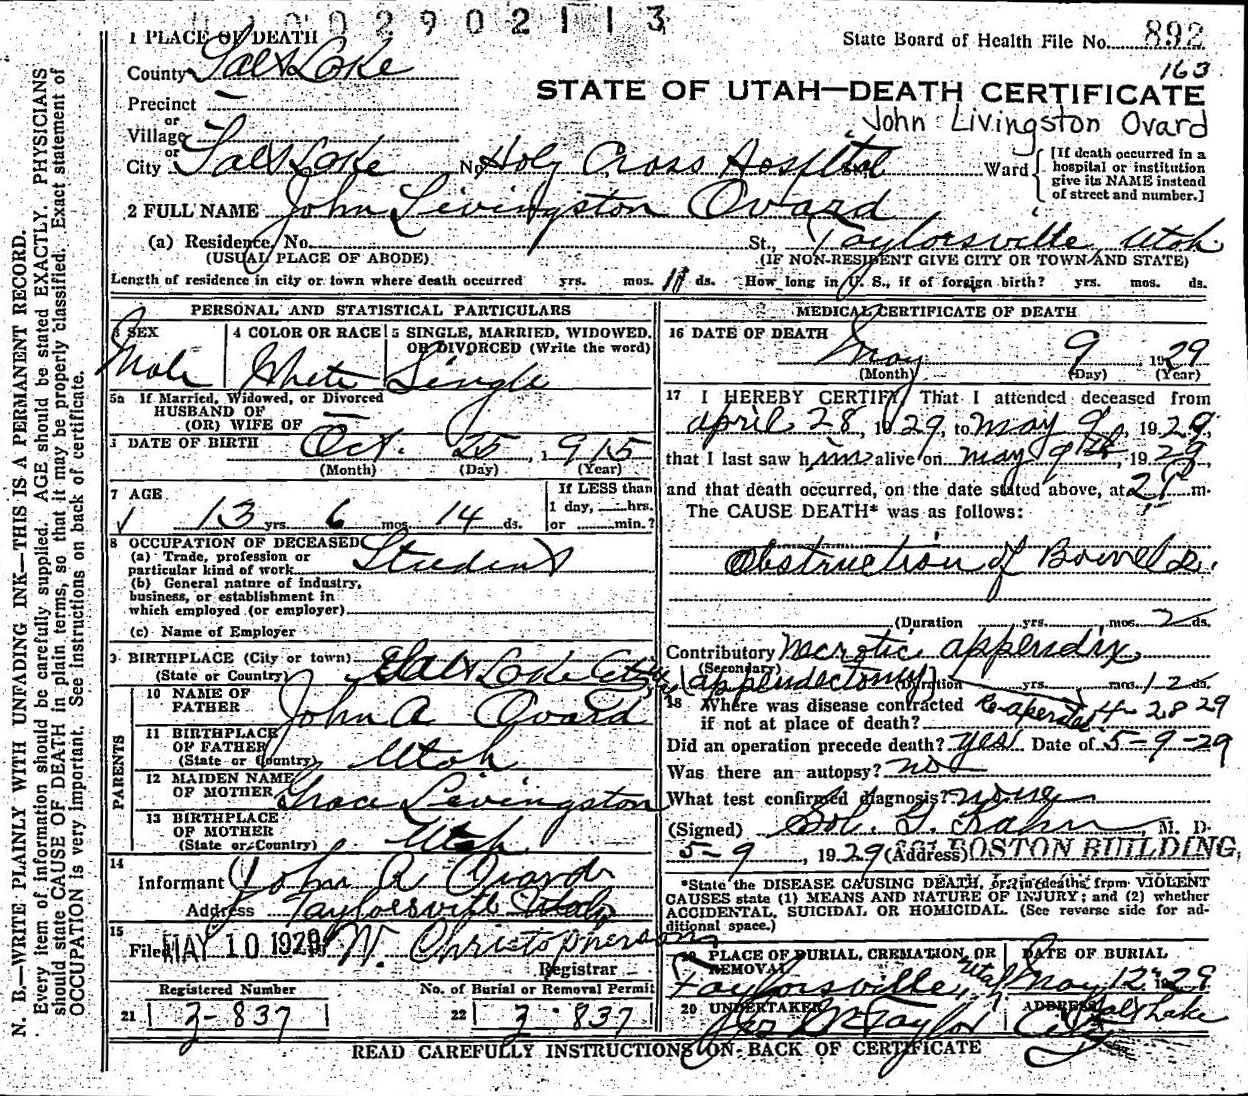 2902113
1 PLACE OF DEATH
State Board of Health File No. 892
163
County Salt Lake
STATE OF UTAH—DEATH CERTIFICATE
Precinct —
or
John Livingston Ovard
Village
or
City Salt Lake No. Holy Cross Hospital Ward
[If death occurred in a hospital or institution give its NAME instead of street and number.]
2 FULL NAME John Livingston Ovard
(a) Residence, No. St., Taylorsville, Utah
(USUAL PLACE OF ABODE) (IF NON-RESIDENT GIVE CITY OR TOWN AND STATE)
Length of residence in city or town where death occurred yrs. mos. 11 ds. How long in U. S., if of foreign birth? yrs. mos. ds.
PERSONAL AND STATISTICAL PARTICULARS
3 SEX 4 COLOR OR RACE 5 SINGLE, MARRIED, WIDOWED, OR DIVORCED (Write the word)
Male White Single
5a If Married, Widowed, or Divorced
HUSBAND OF
(OR) WIFE OF —
DATE OF BIRTH Oct. 25, 1915
(Month) (Day) (Year)
7 AGE
If LESS than
1 day, hrs.
or min.?
13 yrs 6 mos 14 ds.
8 OCCUPATION OF DECEASED
(a) Trade, profession or
particular kind of work Student
(b) General nature of industry,
business, or establishment in
which employed (or employer)
(c) Name of Employer
9 BIRTHPLACE (City or town) Salt Lake City
(State or Country)
PARENTS
10 NAME OF FATHER John A Ovard
11 BIRTHPLACE OF FATHER (State or Country) Utah
12 MAIDEN NAME OF MOTHER Grace Livingston
13 BIRTHPLACE OF MOTHER (State or Country) Utah
14
Informant John A Ovard
Address Taylorsville Utah
15
Filed MAY 10 1929 W. Christopherson
Registrar
Registered Number No. of Burial or Removal Permit
21 3-837 22 3-837
MEDICAL CERTIFICATE OF DEATH
16 DATE OF DEATH May 9 1929
(Month) (Day) (Year)
17 I HEREBY CERTIFY That I attended deceased from
april 28, 1929, to may 9, 1929,
that I last saw him alive on may 9th, 1929
and that death occurred, on the date stated above, at m.
The CAUSE DEATH* was as follows:
Obstruction of Bowels.
(Duration yrs. mos. 2 ds.
Contributory Necrotic appendix
(Secondary)
(appendectomy) (Duration yrs. mos. 12 ds.
18 Where was disease contracted
if not at place of death? 4-28-29
Did an operation precede death? yes Date of 5-9-29
Was there an autopsy? no
What test confirmed diagnosis? none
(Signed) Sol. G. Kahn, M. D.
5-9, 1929 (Address) BOSTON BUILDING,
*State the DISEASE CAUSING DEATH, or in deaths from VIOLENT
CAUSES state (1) MEANS AND NATURE OF INJURY; and (2) whether
ACCIDENTAL, SUICIDAL OR HOMICIDAL. (See reverse side for ad-
ditional space.)
19 PLACE OF BURIAL, CREMATION, OR REMOVAL DATE OF BURIAL
Taylorsville, Utah May 12 1929
20 UNDERTAKER ADDRESS
Taylor Salt Lake City
READ CAREFULLY INSTRUCTIONS ON BACK OF CERTIFICATE
N. B.—WRITE PLAINLY WITH UNFADING INK—THIS IS A PERMANENT RECORD.
Every item of information should be carefully supplied. AGE should be stated EXACTLY. PHYSICIANS
should state CAUSE OF DEATH in plain terms, so that it may be properly classified. Exact statement of
OCCUPATION is very important. See instructions on back of certificate.